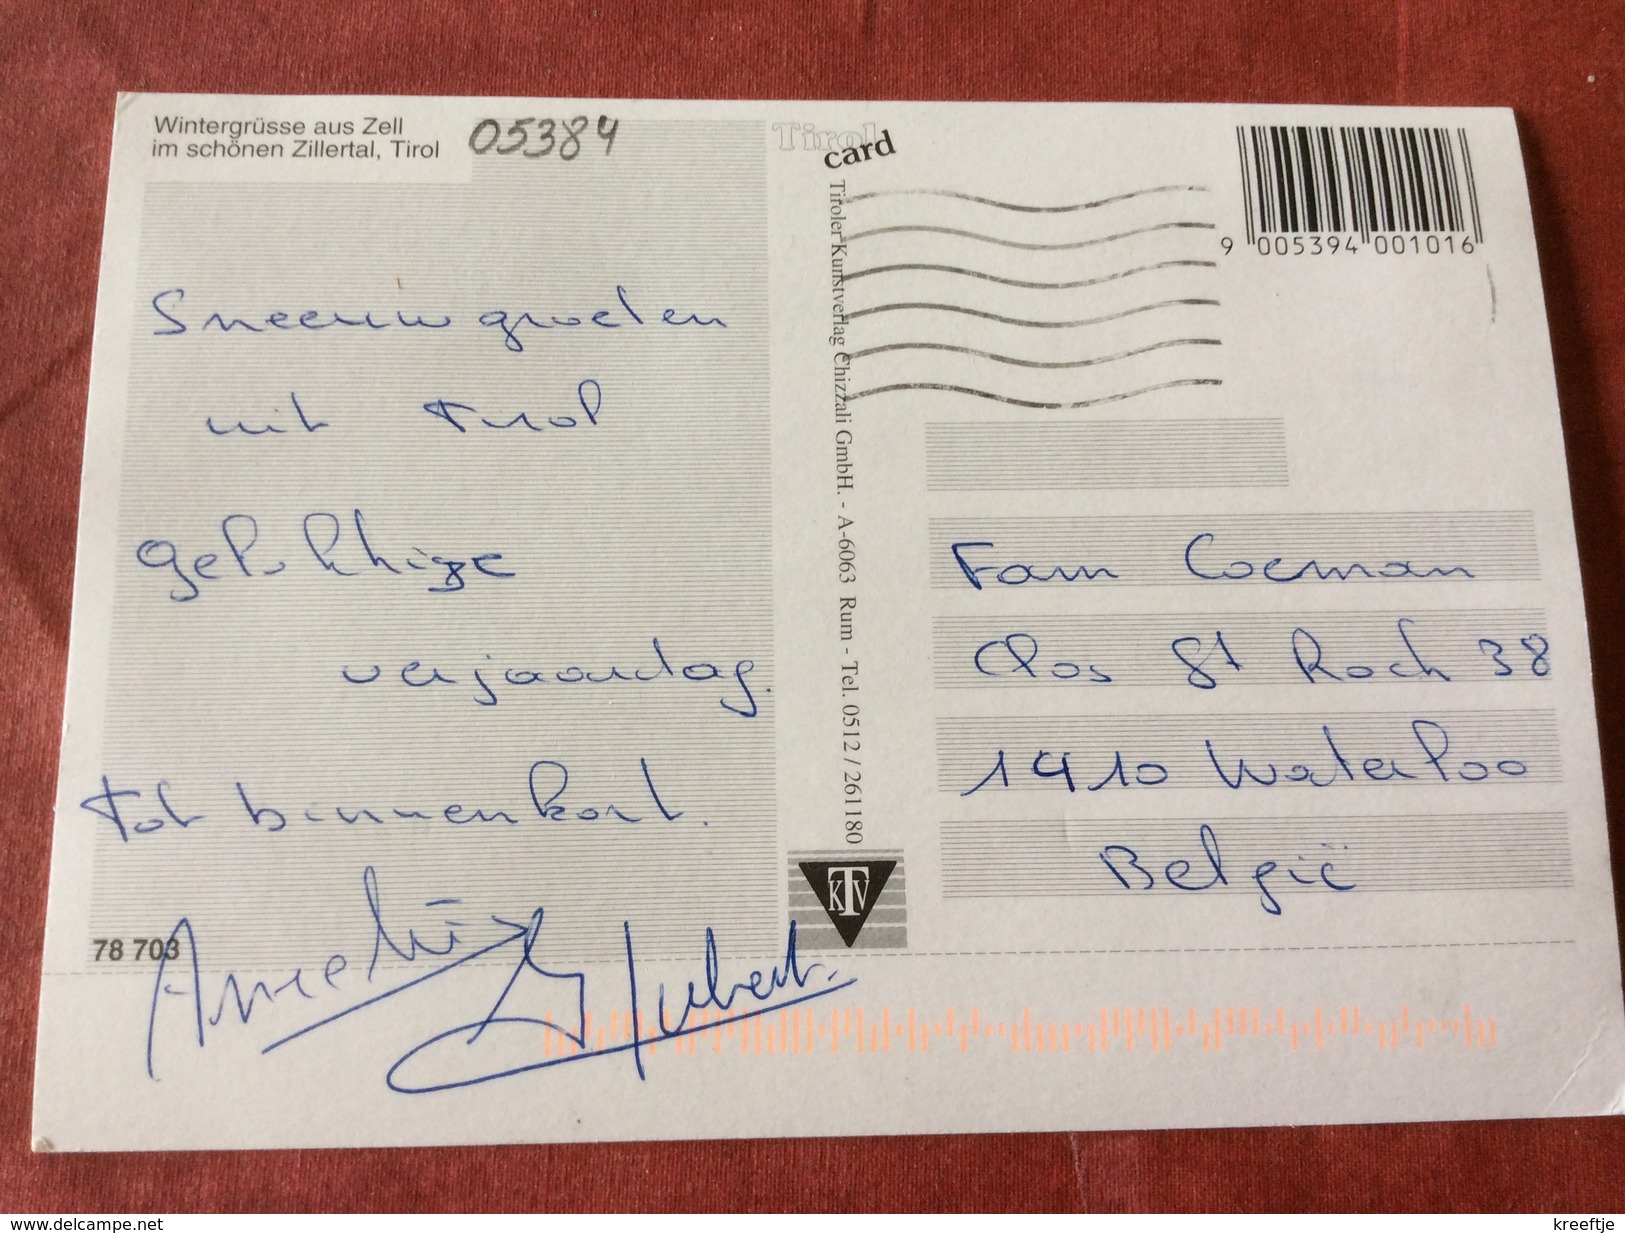 Wintergrüsse aus Zell
im schönen Zillertal, Tirol
05384
Sneeuwgroeten
uit Tirol
Gelukkige
verjaardag.
Tot binnenkort.
Hubert.
78 703
Tirol
card
Tiroler Kunstverlag Chizzali GmbH. - A-6063 Rum - Tel. 0512 / 261180
KTV
9 005394 001016
Fam Coeman
Clos St Roch 38
1410 Waterloo
België
www.delcampe.net
kreeftje